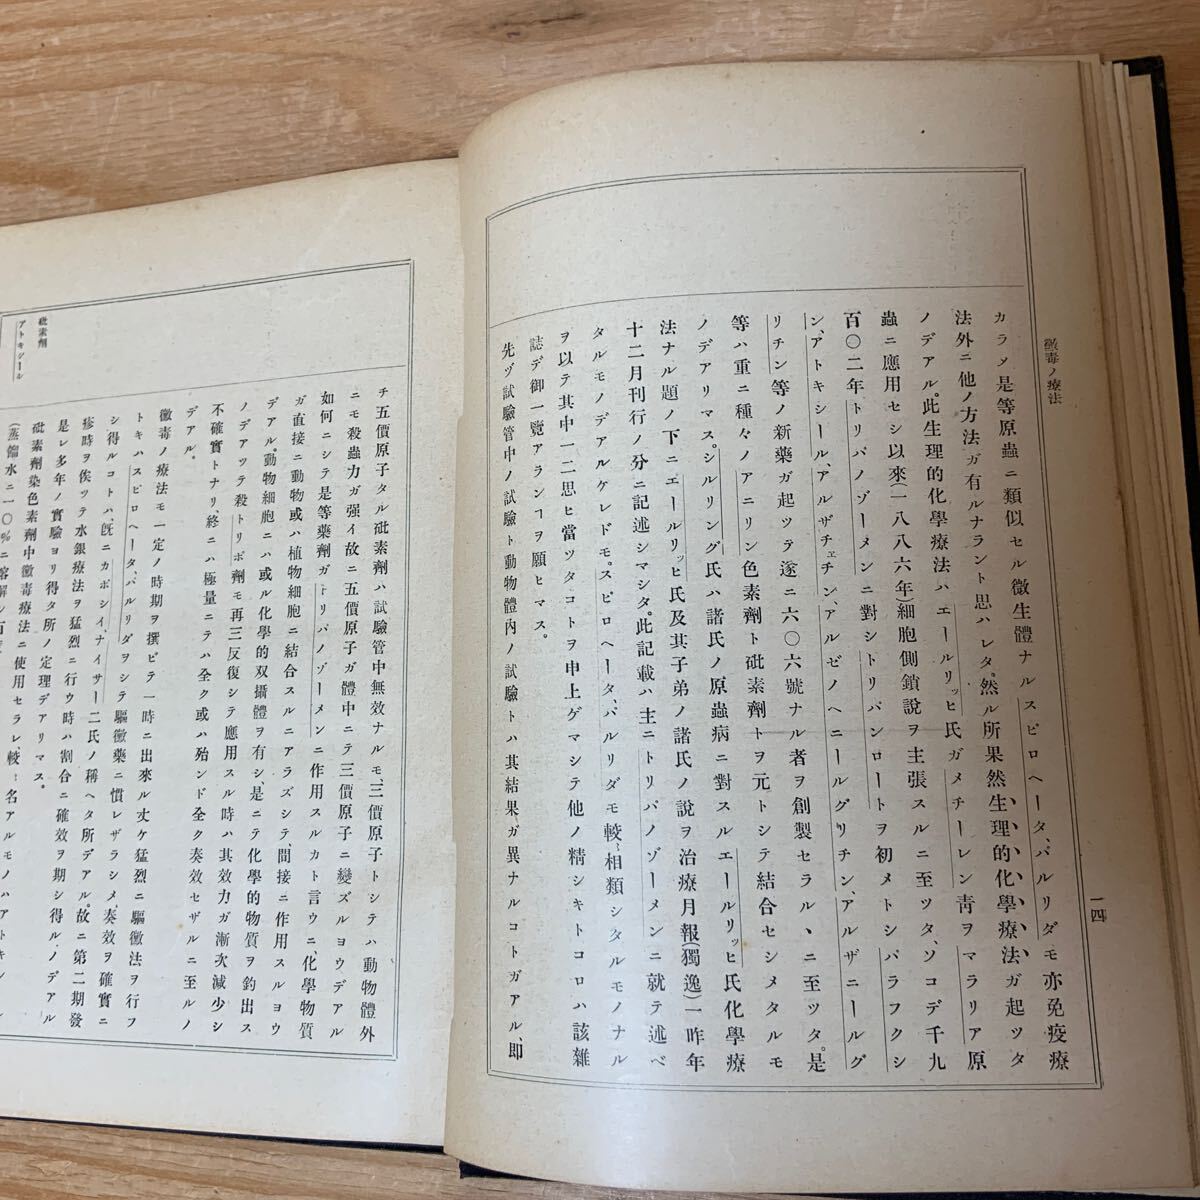 黴毒ノ療法
一四
カラメ是等原蟲ニ類似セル微生體ナルスピロヘータ、パルリダモ亦免疫療
法外ニ他ノ方法ガ有ルナラント思ハレタ。然ル所果然生理的化學療法ガ起ツタ
ノデアル。此生理的化學療法ハエールリッヒ氏ガメチーレン靑ヲマラリア原
蟲ニ應用セシ以來(一八八六年)細胞側鎖說ヲ主張スルニ至ツタ、ソコデ千九
百〇二年トリパノゾーメンニ對シトリパンロートヲ初メトシパラフクシ
ン、アトキシール、アルザチェチン、アルゼノヘニールグリチン、アルザニールグ
リチン等ノ新藥ガ起ツテ遂ニ六〇六號ナル者ヲ創製セラルヽニ至ツタ。是
等ハ重ニ種々ノアニリン色素劑ト砒素劑トヲ元トシテ結合セシメタルモ
ノデアリマス。シルリング氏ハ諸氏ノ原蟲病ニ對スルエールリッヒ氏化學療
法ナル題ノ下ニエールリッヒ氏及其子弟ノ諸氏ノ說ヲ治療月報(獨逸)一昨年
十二月刊行ノ分ニ記述シマシタ。此記載ハ主ニトリパノゾーメンニ就テ述ベ
タルモノデアルケレドモ。スピロヘータ、パルリダモ較〻相類シタルモノナル
ヲ以テ其中一二思ヒ當ツタコトヲ申上ゲマシテ他ノ精シキトコロハ該雜
誌デ御一覽アランヿヲ願ヒマス。
先ヅ試驗管中ノ試驗ト動物體內ノ試驗トハ其結果ガ異ナルコトガアル、卽
チ五價原子タル砒素劑ハ試驗管中無效ナルモ、三價原子トシテハ動物體外
ニモ殺蟲力ガ强イ故ニ五價原子ガ體中ニテ三價原子ニ變ズルヨウデアル
如何ニシテ是等藥劑ガトリパノゾーメンニ作用スルカト言ウニ、化學物質
ガ直接ニ動物或ハ植物細胞ニ結合スルニアラズシテ、間接ニ作用スルヨウ
デアル。動物細胞ニハ或ル化學的双攝體ヲ有シ、是ニテ化學的物質ヲ釣出ス
ノデアツテ殺トリポ劑モ再三反復シテ應用スル時ハ其效力ガ漸次減少シ
不確實トナリ、終ニハ極量ニテハ全ク或ハ殆ンド全ク奏效セザルニ至ルノ
デアル。
黴毒ノ療法モ一定ノ時期ヲ撰ビテ一時ニ出來ル丈ケ猛烈ニ驅黴法ヲ行フ
トキハスピロヘータ、パルリダヲシテ驅黴藥ニ慣レザラシメ、奏效ヲ確實ニ
シ得ルコトハ、旣ニカポシイ、ナイサー二氏ノ稱ヘタ所デアル。故ニ第二期發
疹時ヲ俟ツテ水銀療法ヲ猛烈ニ行ウ時ハ割合ニ確效ヲ期シ得ル、ノデアル
是レ多年ノ實驗ヨリ得タ所ノ定理デアリマス。
砒素劑
アトキシール
砒素劑染色素劑中黴毒療法ニ使用セラレ、較〻名アルモノハアトキシール
(蒸餾水ニ一〇%ニ溶解シ